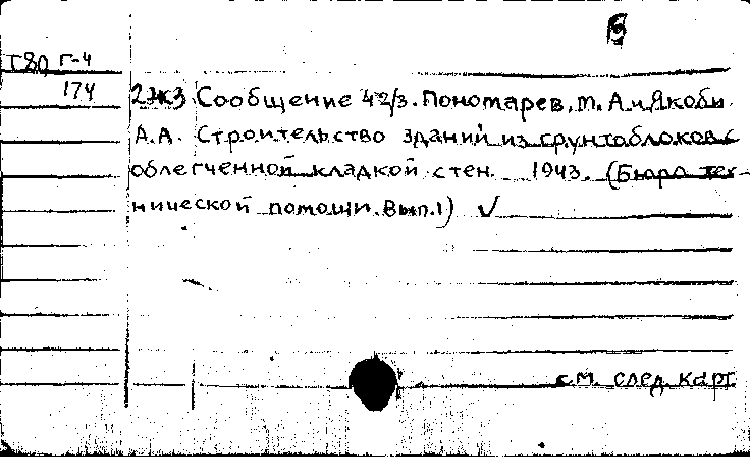 Б
Т80 Г-4
174
2жз Сообщение 42/3. Пономарев, М. А. и Якоби
А.А. Строительство зданий из грунтоблоков с
облегченной кладкой стен. 1943. (Бюро тех-
нической помощи. Вып.1) ✓
см. след. карт.